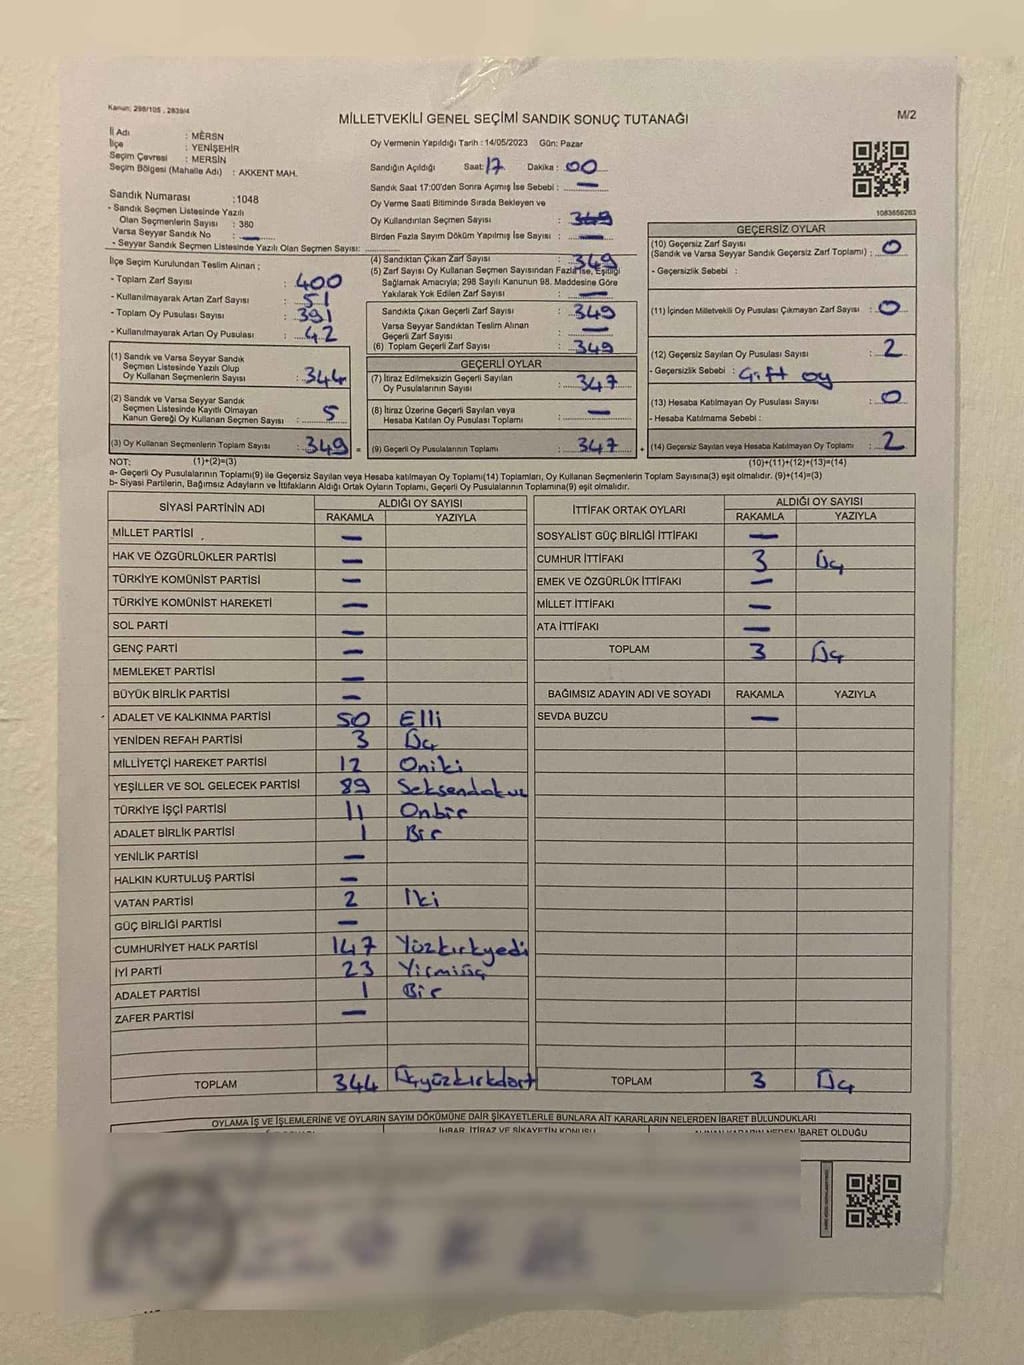 Kanun: 298/105 , 2839/4
MİLLETVEKİLİ GENEL SEÇİMİ SANDIK SONUÇ TUTANAĞI
M/2
İl Adı : MERSN
İlçe : YENİŞEHİR
Seçim Çevresi : MERSİN
Seçim Bölgesi (Mahalle Adı) : AKKENT MAH.
Oy Vermenin Yapıldığı Tarih : 14/05/2023 Gün: Pazar
Sandığın Açıldığı Saat: 17 Dakika : 00
Sandık Saat 17:00'den Sonra Açımış İse Sebebi : —
Oy Verme Saati Bitiminde Sırada Bekleyen ve
Oy Kullandırılan Seçmen Sayısı :
Birden Fazla Sayım Döküm Yapılmış İse Sayısı : —
Sandık Numarası : 1048
- Sandık Seçmen Listesinde Yazılı
Olan Seçmenlerin Sayısı : 380
Varsa Seyyar Sandık No : —
- Seyyar Sandık Seçmen Listesinde Yazılı Olan Seçmen Sayısı:
1083656263
İlçe Seçim Kurulundan Teslim Alınan ;
- Toplam Zarf Sayısı : 400
- Kullanılmayarak Artan Zarf Sayısı : 51
- Toplam Oy Pusulası Sayısı : 391
- Kullanılmayarak Artan Oy Pusulası : 42
(1) Sandık ve Varsa Seyyar Sandık
Seçmen Listesinde Yazılı Olup
Oy Kullanan Seçmenlerin Sayısı : 344
(2) Sandık ve Varsa Seyyar Sandık
Seçmen Listesinde Kayıtlı Olmayan
Kanun Gereği Oy Kullanan Seçmen Sayısı : 5
(3) Oy Kullanan Seçmenlerin Toplam Sayısı : 349
(4) Sandıktan Çıkan Zarf Sayısı : 349
(5) Zarf Sayısı Oy Kullanan Seçmen Sayısından Fazla İse, Eşitliği
Sağlamak Amacıyla; 298 Sayılı Kanunun 98. Maddesine Göre
Yakılarak Yok Edilen Zarf Sayısı : —
Sandıkta Çıkan Geçerli Zarf Sayısı : 349
Varsa Seyyar Sandıktan Teslim Alınan
Geçerli Zarf Sayısı : —
(6) Toplam Geçerli Zarf Sayısı : 349
GEÇERLİ OYLAR
(7) İtiraz Edilmeksizin Geçerli Sayılan
Oy Pusulalarının Sayısı : 347
(8) İtiraz Üzerine Geçerli Sayılan veya
Hesaba Katılan Oy Pusulaları Toplamı : —
= (9) Geçerli Oy Pusulalarının Toplamı : 347
GEÇERSİZ OYLAR
(10) Geçersiz Zarf Sayısı
(Sandık ve Varsa Seyyar Sandık Geçersiz Zarf Toplamı) : 0
- Geçersizlik Sebebi :
(11) İçinden Milletvekili Oy Pusulası Çıkmayan Zarf Sayısı : 0
(12) Geçersiz Sayılan Oy Pusulası Sayısı : 2
- Geçersizlik Sebebi : Çift oy
(13) Hesaba Katılmayan Oy Pusulası Sayısı : 0
- Hesaba Katılmama Sebebi :
+ (14) Geçersiz Sayılan veya Hesaba Katılmayan Oy Toplamı : 2
NOT: (1)+(2)=(3)
(10)+(11)+(12)+(13)=(14)
a- Geçerli Oy Pusulalarının Toplamı(9) ile Geçersiz Sayılan veya Hesaba katılmayan Oy Toplamı(14) Toplamları, Oy Kullanan Seçmenlerin Toplam Sayısına(3) eşit olmalıdır. (9)+(14)=(3)
b- Siyasi Partilerin, Bağımsız Adayların ve İttifakların Aldığı Ortak Oyların Toplamı, Geçerli Oy Pusulalarının Toplamına(9) eşit olmalıdır.
SİYASİ PARTİNİN ADI ALDIĞI OY SAYISI
RAKAMLA YAZIYLA
MİLLET PARTİSİ —
HAK VE ÖZGÜRLÜKLER PARTİSİ —
TÜRKİYE KOMÜNİST PARTİSİ —
TÜRKİYE KOMÜNİST HAREKETİ —
SOL PARTİ —
GENÇ PARTİ —
MEMLEKET PARTİSİ —
BÜYÜK BİRLİK PARTİSİ —
ADALET VE KALKINMA PARTİSİ 50 Elli
YENİDEN REFAH PARTİSİ 3 Üç
MİLLİYETÇİ HAREKET PARTİSİ 12 Oniki
YEŞİLLER VE SOL GELECEK PARTİSİ 89 Seksendokuz
TÜRKİYE İŞÇİ PARTİSİ 11 Onbir
ADALET BİRLİK PARTİSİ 1 Bir
YENİLİK PARTİSİ —
HALKIN KURTULUŞ PARTİSİ —
VATAN PARTİSİ 2 İki
GÜÇ BİRLİĞİ PARTİSİ —
CUMHURİYET HALK PARTİSİ 147 Yüzkırkyedi
İYİ PARTİ 23 Yirmiüç
ADALET PARTİSİ 1 Bir
ZAFER PARTİSİ —
TOPLAM 344 Üçyüzkırkdört
İTTİFAK ORTAK OYLARI ALDIĞI OY SAYISI
RAKAMLA YAZIYLA
SOSYALİST GÜÇ BİRLİĞİ İTTİFAKI —
CUMHUR İTTİFAKI 3 Üç
EMEK VE ÖZGÜRLÜK İTTİFAKI —
MİLLET İTTİFAKI —
ATA İTTİFAKI —
TOPLAM 3 Üç
BAĞIMSIZ ADAYIN ADI VE SOYADI RAKAMLA YAZIYLA
SEVDA BUZCU —
TOPLAM 3 Üç
OYLAMA İŞ VE İŞLEMLERİNE VE OYLARIN SAYIM DÖKÜMÜNE DAİR ŞİKAYETLERLE BUNLARA AİT KARARLARIN NELERDEN İBARET BULUNDUKLARI
İHBAR, İTİRAZ VE ŞİKAYETİN KONUSU
İBARET OLDUĞU